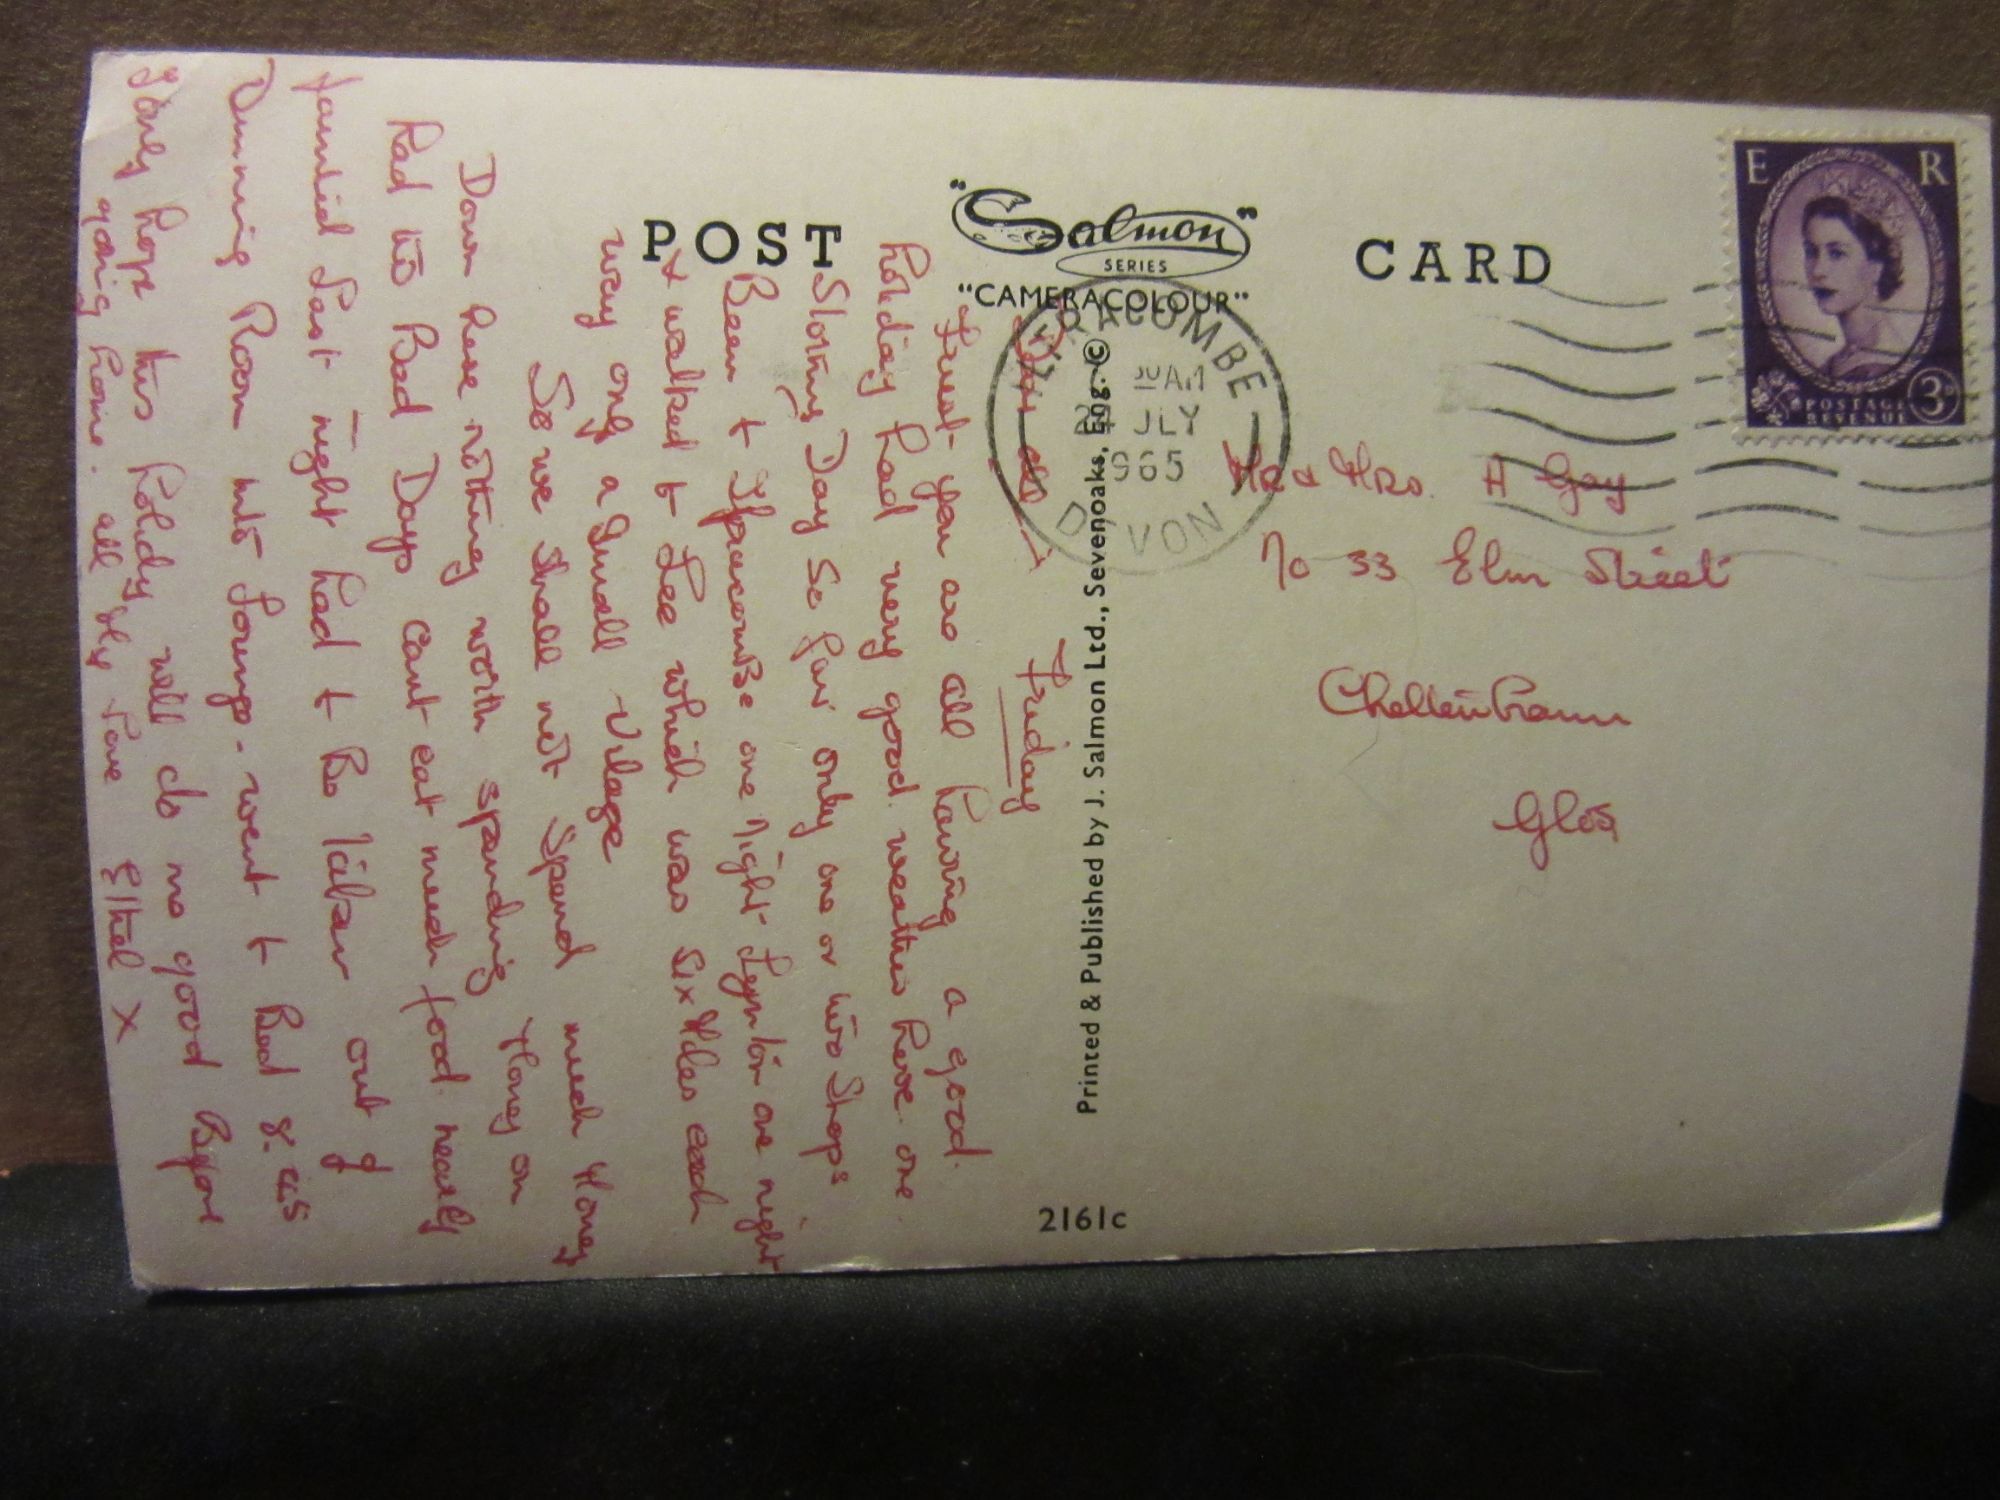 POST
"Salmon"
SERIES
"CAMERACOLOUR"
CARD
E R
POSTAGE
REVENUE
3D
ILFRACOMBE
AM
JLY
1965
DEVON
Printed & Published by J. Salmon Ltd., Sevenoaks, Eng. ©
2161c
Mr & Mrs. A Gay
No 33 Elm Street
Cheltenham
Glos
Friday
Dear all
Trust you are all having a good
holiday had very good weather here one
Stormy Day So far only one or two Shops
Been to Ilfracombe one night Lynton one night
& walked to Lee which was six Miles each
way only a Small Village
So we Shall not Spend much Money
Down here nothing worth spending Money on
had two Bad Days cant eat much food. nearly
fainted Last night had to Be taken out of
Dinning Room into Lounge - went to Bed 8.45
only hope this holidy will do me good Before
going home. all My Love Ethel X